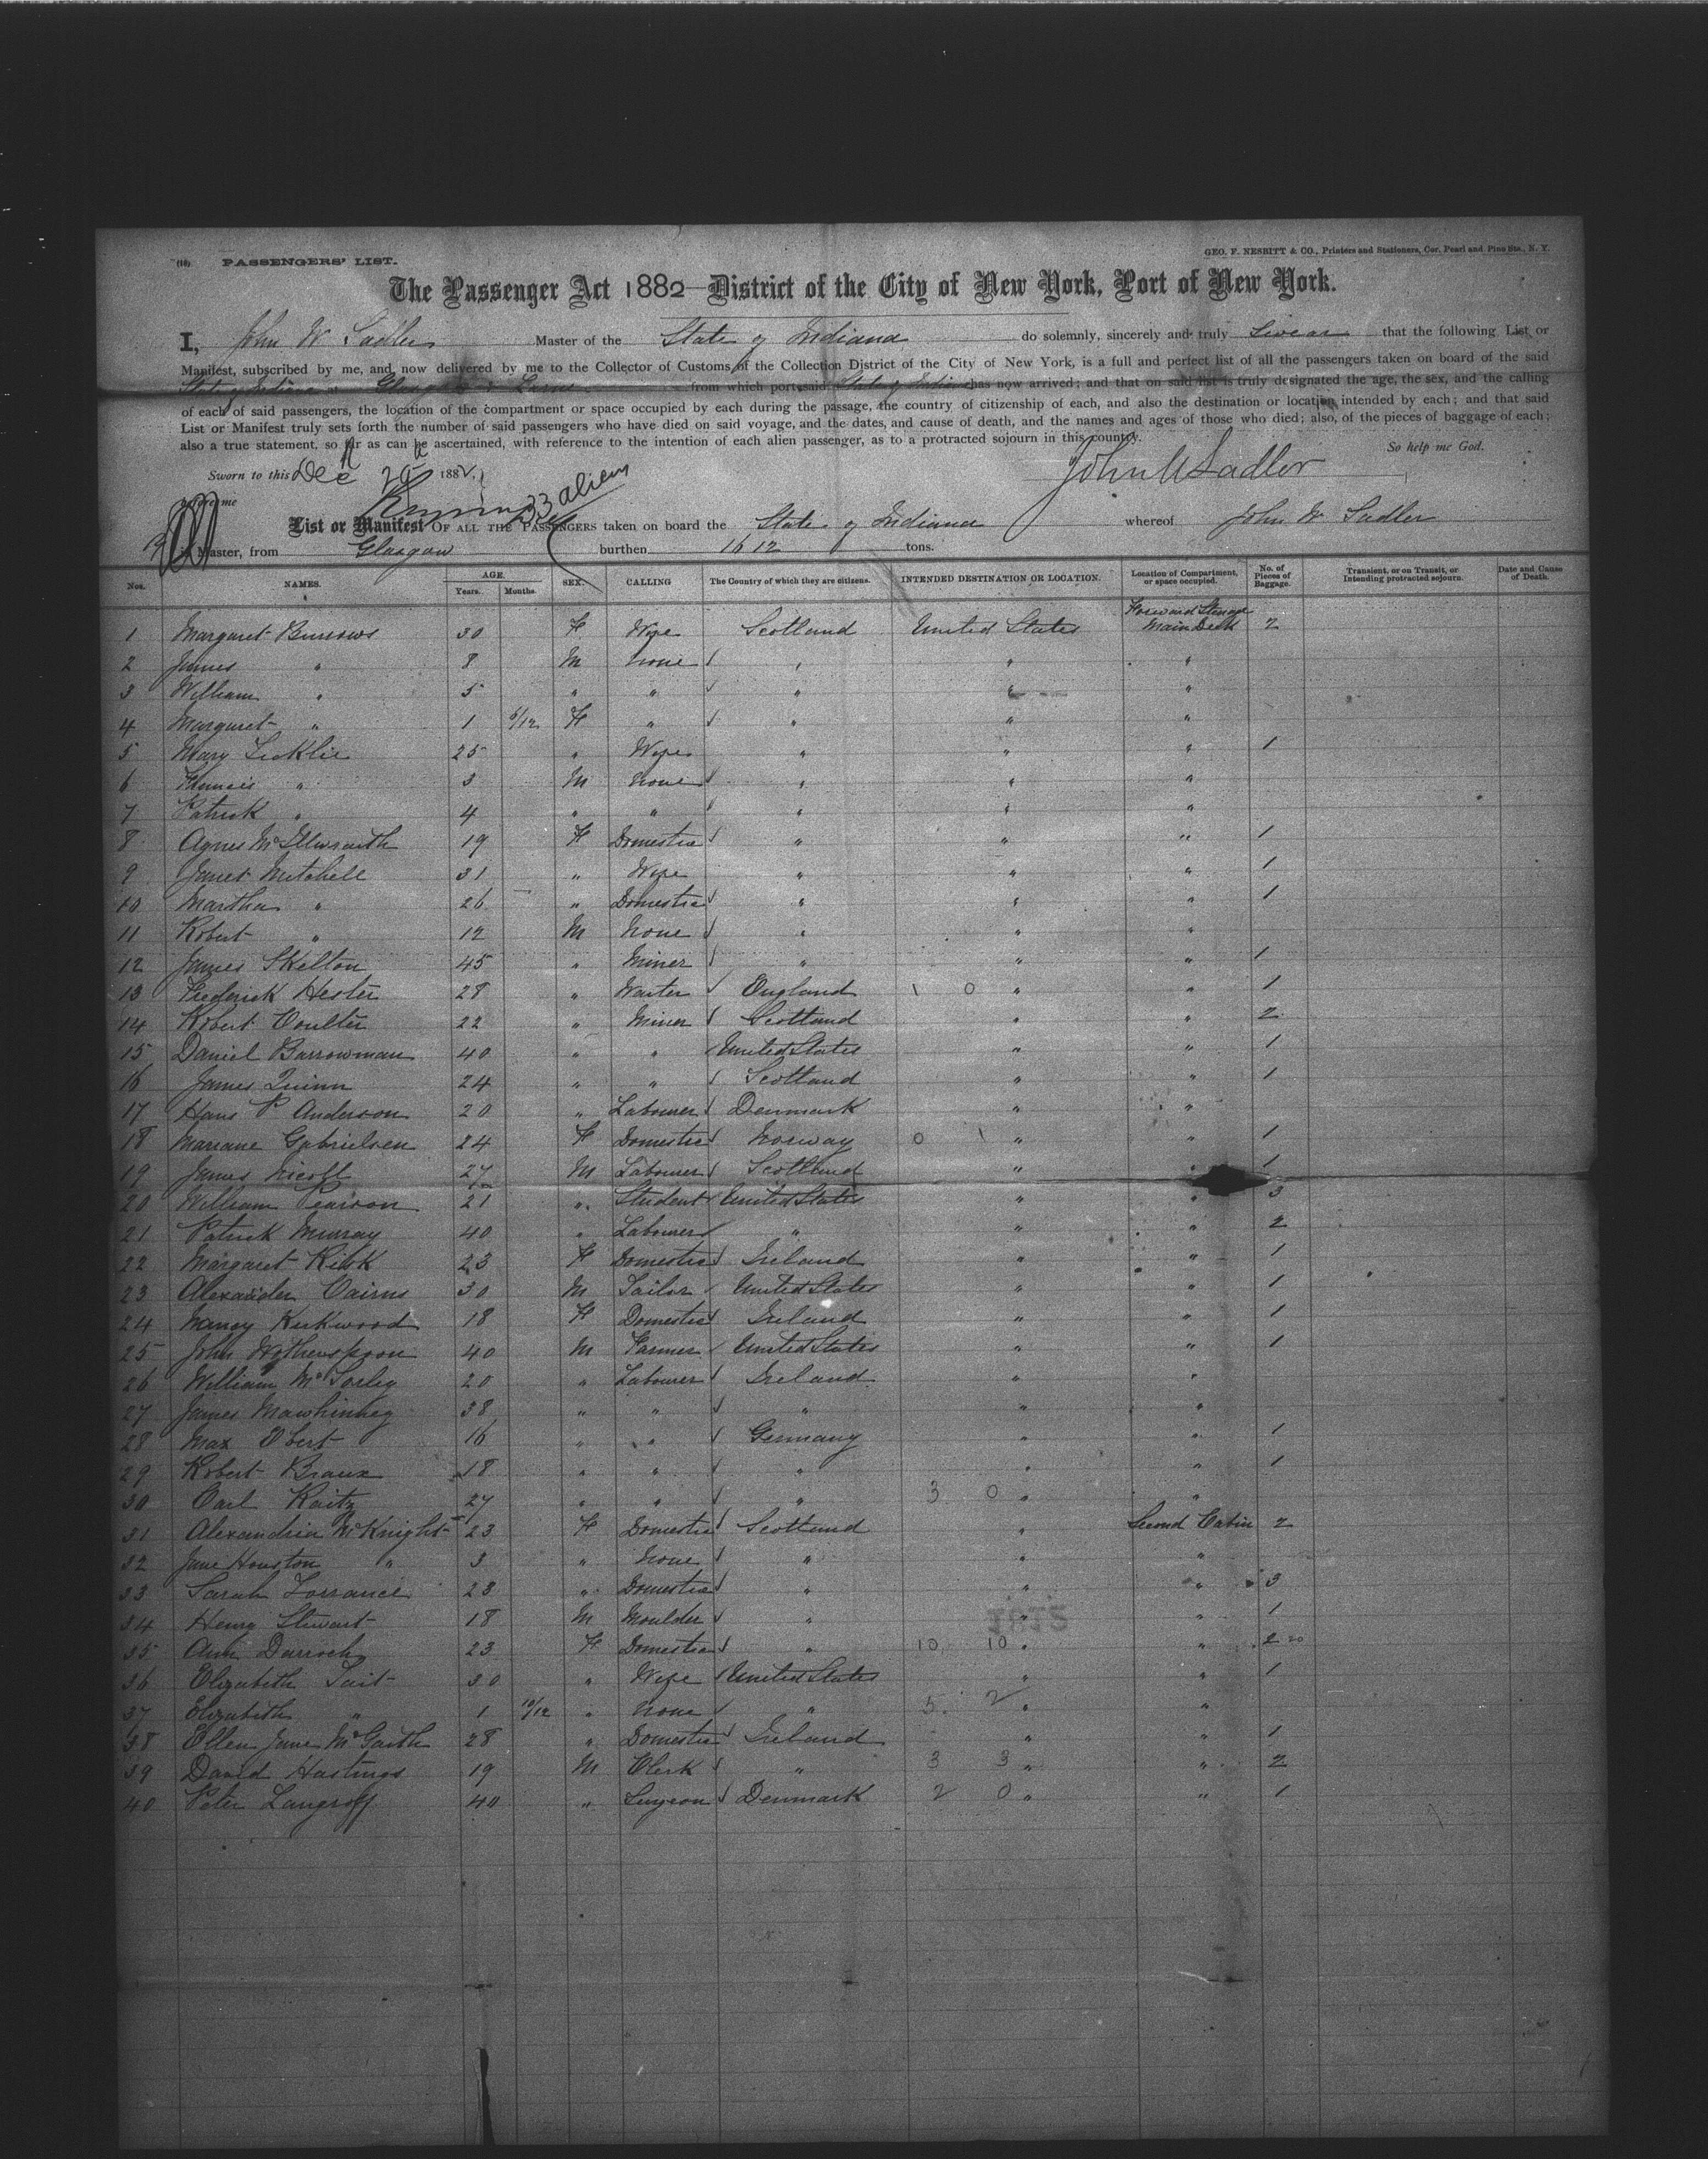 (18) PASSENGERS' LIST.
GEO. F. NESBITT & CO., Printers and Stationers, Cor. Pearl and Pine Sts., N. Y.
The Passenger Act 1882—District of the City of New York, Port of New York.
I, John W Sadler Master of the State of Indiana do solemnly, sincerely and truly Swear that the following List or
Manifest, subscribed by me, and now delivered by me to the Collector of Customs of the Collection District of the City of New York, is a full and perfect list of all the passengers taken on board of the said
State of Indiana Glasgow & Larne from which port said State of Indiana has now arrived; and that on said list is truly designated the age, the sex, and the calling
of each of said passengers, the location of the compartment or space occupied by each during the passage, the country of citizenship of each, and also the destination or location intended by each; and that said
List or Manifest truly sets forth the number of said passengers who have died on said voyage, and the dates, and cause of death, and the names and ages of those who died; also, of the pieces of baggage of each;
also a true statement, so far as can be ascertained, with reference to the intention of each alien passenger, as to a protracted sojourn in this country. So help me God.
Sworn to this Dec 1882 John W Sadler
before me
33 aliens
List or Manifest OF ALL THE PASSENGERS taken on board the State of Indiana whereof John W Sadler
is Master, from Glasgow burthen 1612 tons.
Nos. NAMES. AGE. Years. Months. SEX. CALLING The Country of which they are citizens. INTENDED DESTINATION OR LOCATION. Location of Compartment, or space occupied. No. of Pieces of Baggage. Transient, or on Transit, or Intending protracted sojourn. Date and Cause of Death.
1 Margaret Burrows 30 F Wife Scotland United States Forward Steerage Main Deck 2
2 James " 8 M None " " "
3 William " 5 " " " " "
4 Margaret " 1 6/12 F " " " "
5 Mary Licklie 25 " Wife " " " 1
6 Francis " 3 M None " " "
7 Patrick " 4 " " " " "
8 Agnes McIllwraith 19 F Domestic " " " 1
9 Janet Mitchell 31 " Wife " " " 1
10 Martha " 26 " Domestic " " " 1
11 Robert " 12 M None " " "
12 James Skelton 45 " Miner " " " 1
13 Frederick Hester 28 " Waiter England 1 0 " " 1
14 Robert Coulter 22 " Miner Scotland " " 2
15 Daniel Barrowman 40 " " United States " " 1
16 James Quinn 24 " " Scotland " " 1
17 Hans P Anderson 20 " Labourer Denmark " "
18 Mariane Gabrielsen 24 F Domestic Norway 0 1 " " 1
19 James Nicoll 27 M Labourer Scotland " " 1
20 William Pearson 21 " Student United States " " 3
21 Patrick Murray 40 " Labourer " " " 2
22 Margaret Kirk 23 F Domestic Ireland " " 1
23 Alexander Cairns 30 M Tailor United States " " 1
24 Nancy Kirkwood 18 F Domestic Ireland " " 1
25 John Wotherspoon 40 M Farmer United States " " 1
26 William McSorley 20 " Labourer Ireland " "
27 James Mawhinney 38 " " " " "
28 Max Obert 16 " " Germany " " 1
29 Robert Braux 18 " " " " " 1
30 Carl Raitz 27 " " " 3 0 " "
31 Alexandria McKnight 23 F Domestic Scotland " Second Cabin 2
32 Jane Houston " 3 " None " " "
33 Sarah Torrance 23 " Domestic " " " 3
34 Henry Stewart 18 M Moulder " " " 1
35 Ann Darroch 23 F Domestic " 10 10 " " 2
36 Elizabeth Tait 30 " Wife United States " " 1
37 Elizabeth " 1 10/12 " None " 5 2 " "
38 Ellen Jane McGaith 28 " Domestic Ireland " " 1
39 David Hastings 19 M Clerk " 3 3 " " 2
40 Peter Langroff 40 " Surgeon Denmark 2 0 " " 1